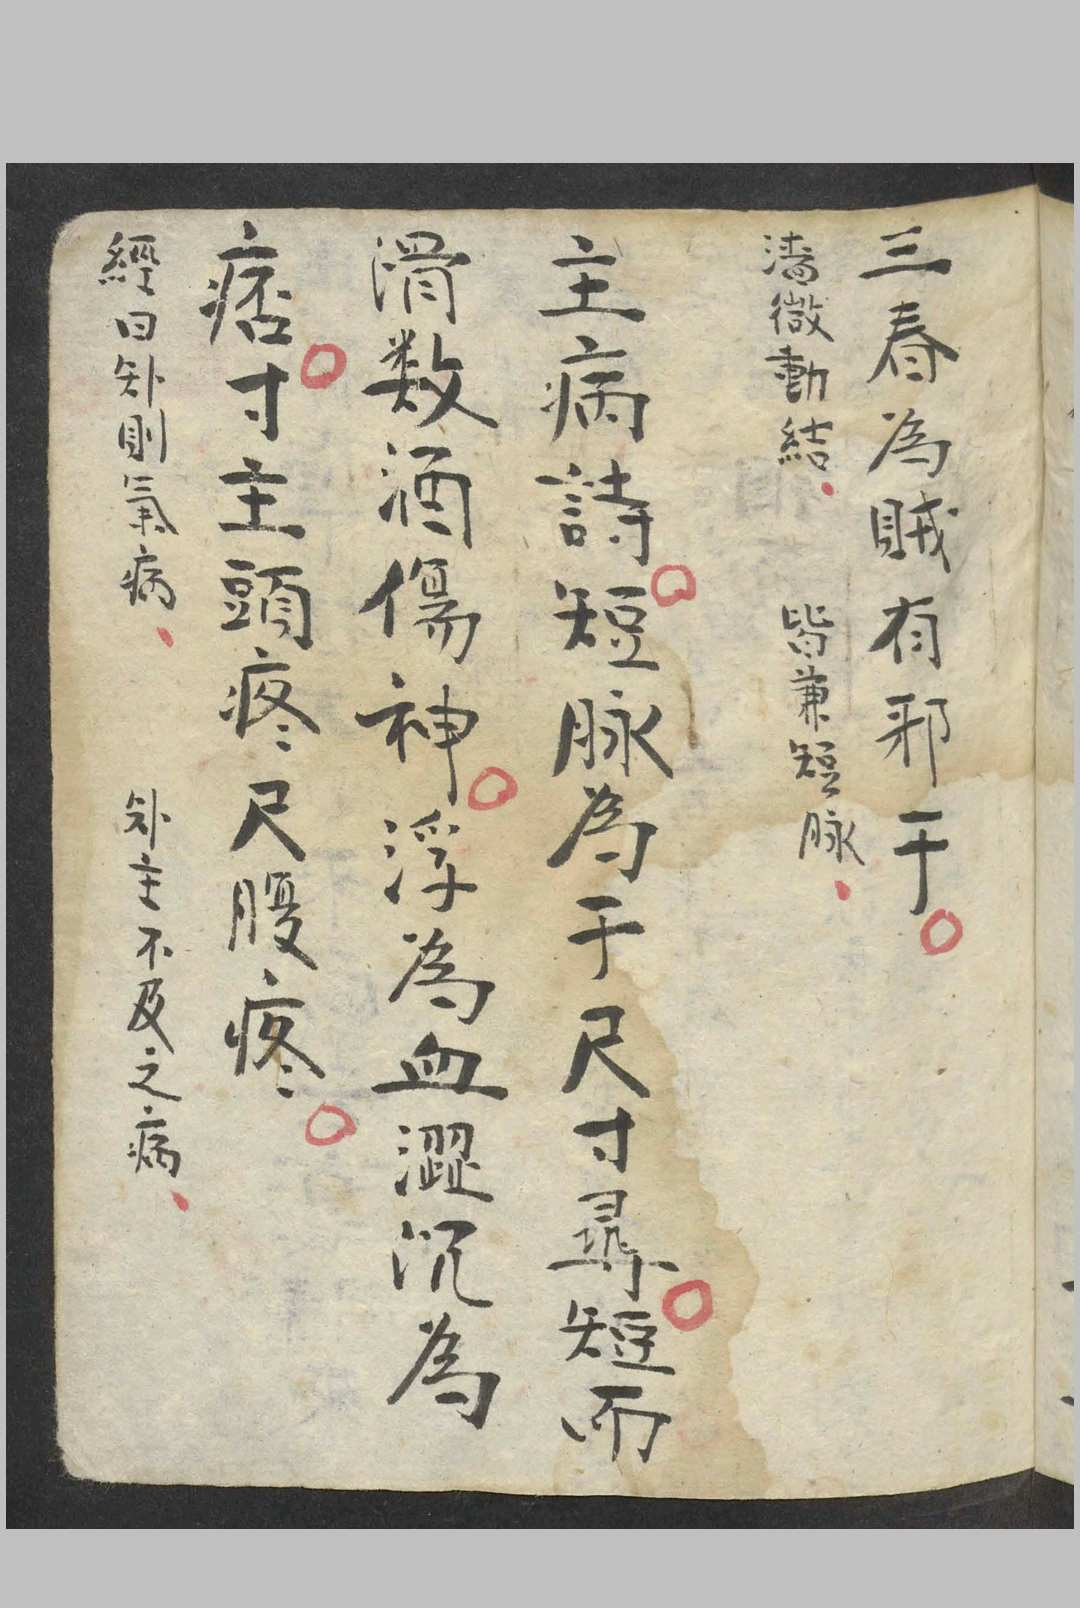 三春為賊有邪干
濇微動結 皆兼短脉
主病詩短脉為于尺寸尋短而
滑数酒傷神浮為血澀沉為
痞寸主頭疼尺腹疼
經曰短則氣病 短主不及之病